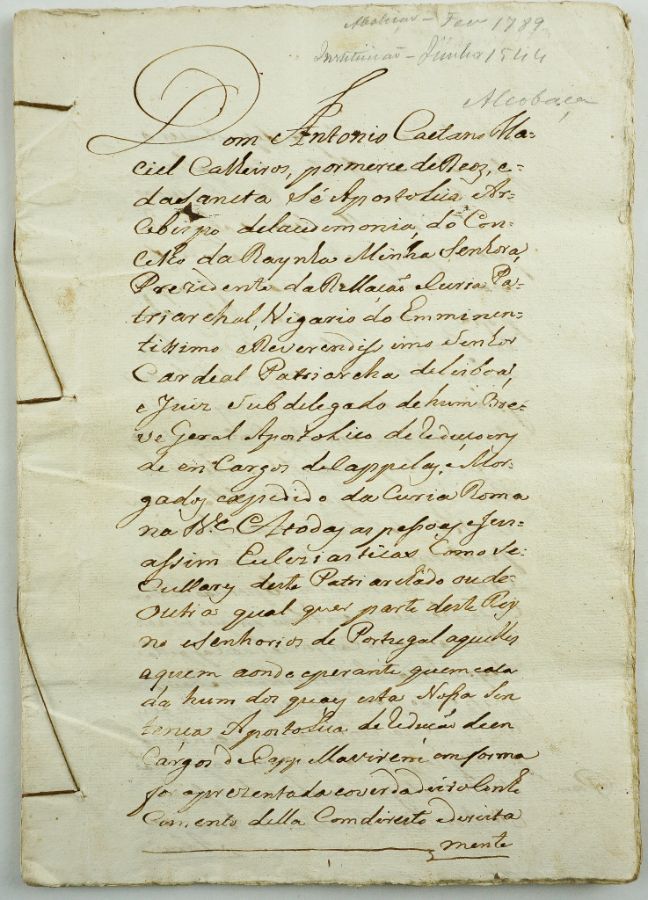 Abolição - Fev 1789
Instituição - Junho 1544
Alcobaça
Dom Antonio Caetano Ma-
ciel Calheiros, por merce de Deos, e
da Sancta Sé Apostolica Ar-
cebispo de Lacedemonia, do Con-
celho da Raynha Minha Senhora
Prezidente da Rellação e Curia Pa-
triarchal, Vigario do Emminen-
tissimo e Reverendissimo Senhor
Cardeal Patriarcha de Lisboa,
e Juiz Subdelegado de hum Bre-
ve Geral Apostolico de Reducoens
de en Cargos de Cappelas, e Mor-
gados expedido da Curia Roma
na &c. A todas as pessoas
assim Eclesiasticas Como Se-
Cullares deste Patriarchado ou de
Outra qual quer parte deste Rey
no e Senhorios de Portugal aquelles
aquem aonde eperante quem e cada
da hum dos quaes esta Nossa Sen
tença Apostolica de Redução de en
Cargos de Capp.ella virem em forma
for aprezentada e o verdadeiro Conhe
Cimento della Com direito e direita
mente
1